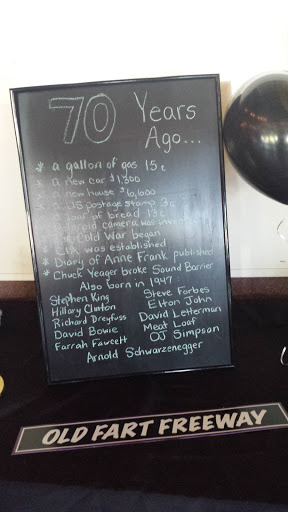 70 Years
Ago...
* a gallon of gas 15¢
* a new car $1,300
* a new house $6,600
* a US postage stamp 3¢
* a loaf of bread 13¢
* Polaroid camera was invented
* the Cold War began
* CIA was established
* Diary of Anne Frank published
* Chuck Yeager broke Sound Barrier
Also born in 1947
Stephen King Steve Forbes
Hillary Clinton Elton John
Richard Dreyfuss David Letterman
David Bowie Meat Loaf
Farrah Fawcett OJ Simpson
Arnold Schwarzenegger
OLD FART FREEWAY